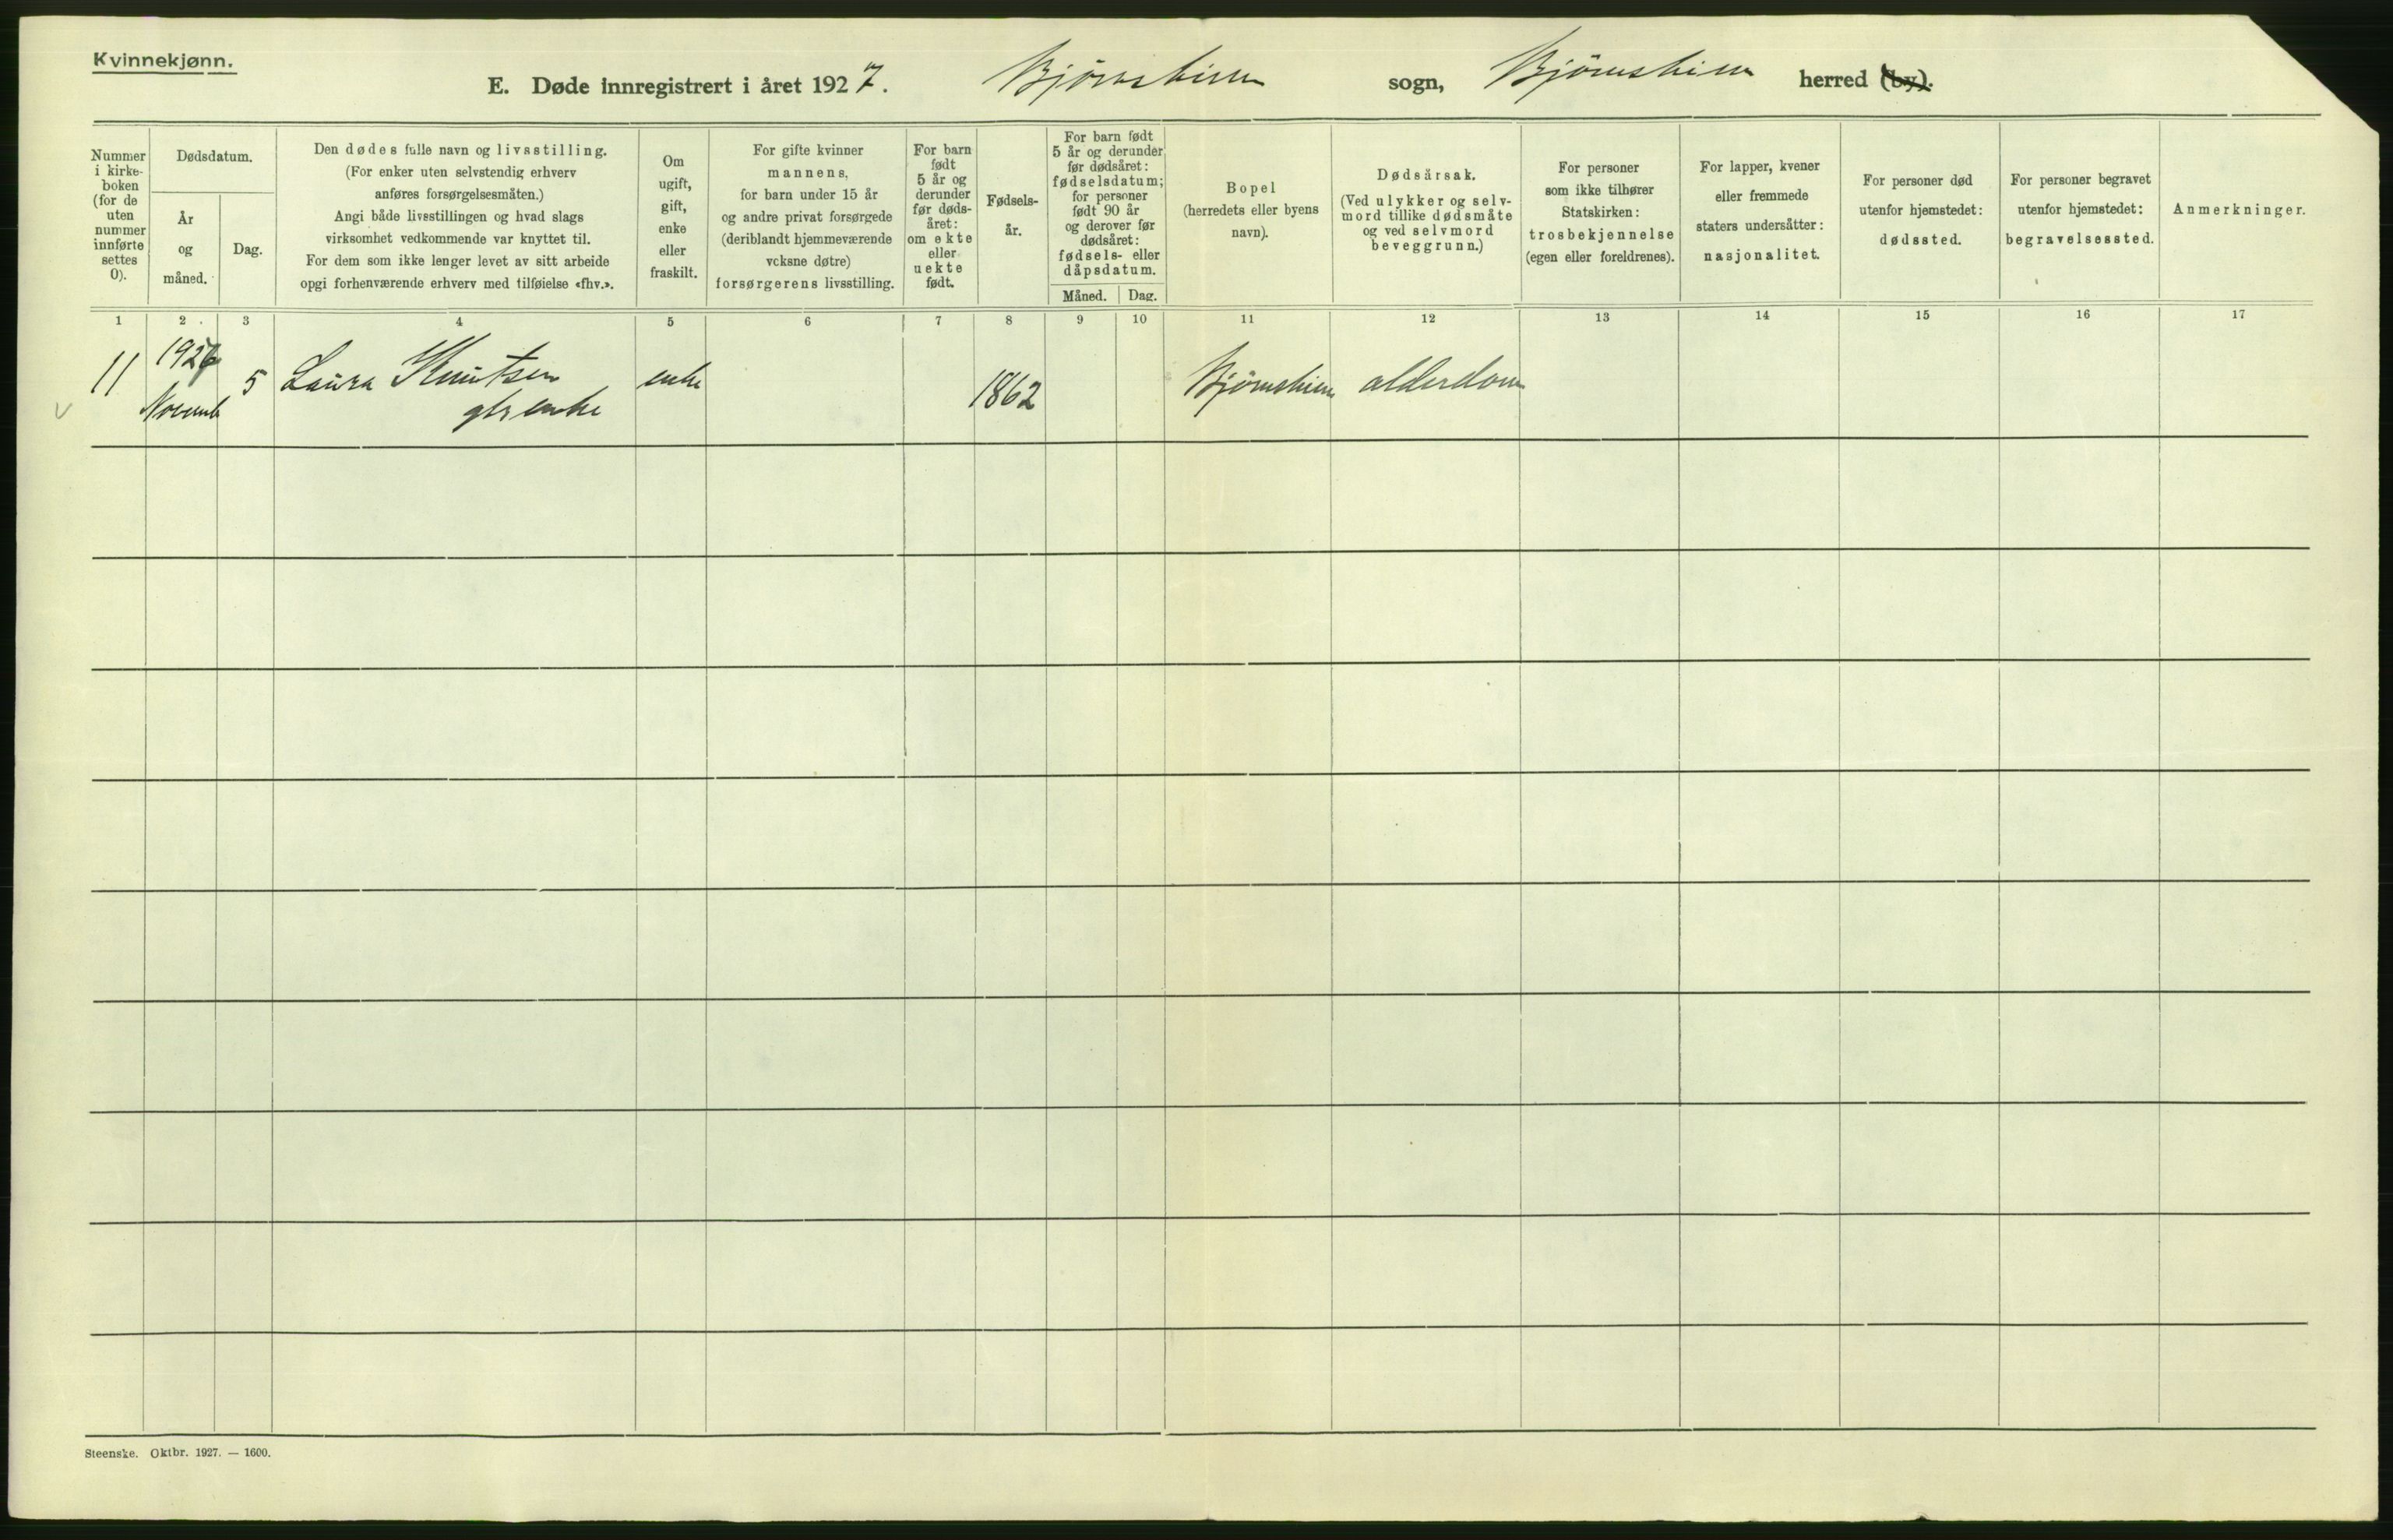 Kvinnekjønn.
E. Døde innregistrert i året 1927. Bjørnskinn sogn, Bjørnskinn herred (by).
Nummer
i kirke-
boken
(for de
uten
nummer
innførte
settes
0).
Dødsdatum.
År
og
måned.
Dag.
Den dødes fulle navn og livsstilling.
(For enker uten selvstendig erhverv
anføres forsørgelsesmåten.)
Angi både livsstillingen og hvad slags
virksomhet vedkommende var knyttet til.
For dem som ikke lenger levet av sitt arbeide
opgi forhenværende erhverv med tilføielse «fhv.».
Om
ugift,
gift,
enke
eller
fraskilt.
For gifte kvinner
mannens,
for barn under 15 år
og andre privat forsørgede
(deriblandt hjemmeværende
vcksne døtre)
forsørgerens livsstilling.
For barn
født
5 år og
derunder
før døds-
året:
om ekte
eller
uekte
født.
Fødsels-
år.
For barn født
5 år og derunder
før dødsåret:
fødselsdatum;
for personer
født 90 år
og derover før
dødsåret:
fødsels- eller
dåpsdatum.
Måned. Dag.
Bopel
(herredets eller byens
navn).
Dødsårsak.
(Ved ulykker og selv-
mord tillike dødsmåte
og ved selvmord
beveggrunn.)
For personer
som ikke tilhører
Statskirken:
trosbekjennelse
(egen eller foreldrenes).
For lapper, kvener
eller fremmede
staters undersåtter:
nasjonalitet.
For personer død
utenfor hjemstedet:
dødssted.
For personer begravet
utenfor hjemstedet:
begravelsessted.
Anmerkninger.
1 2 3 4 5 6 7 8 9 10 11 12 13 14 15 16 17
11 1927 5 Laura Knutsen enke 1862 Bjørnskinn alderdom
Novemb enke
Steenske. Oktbr. 1927. — 1600.